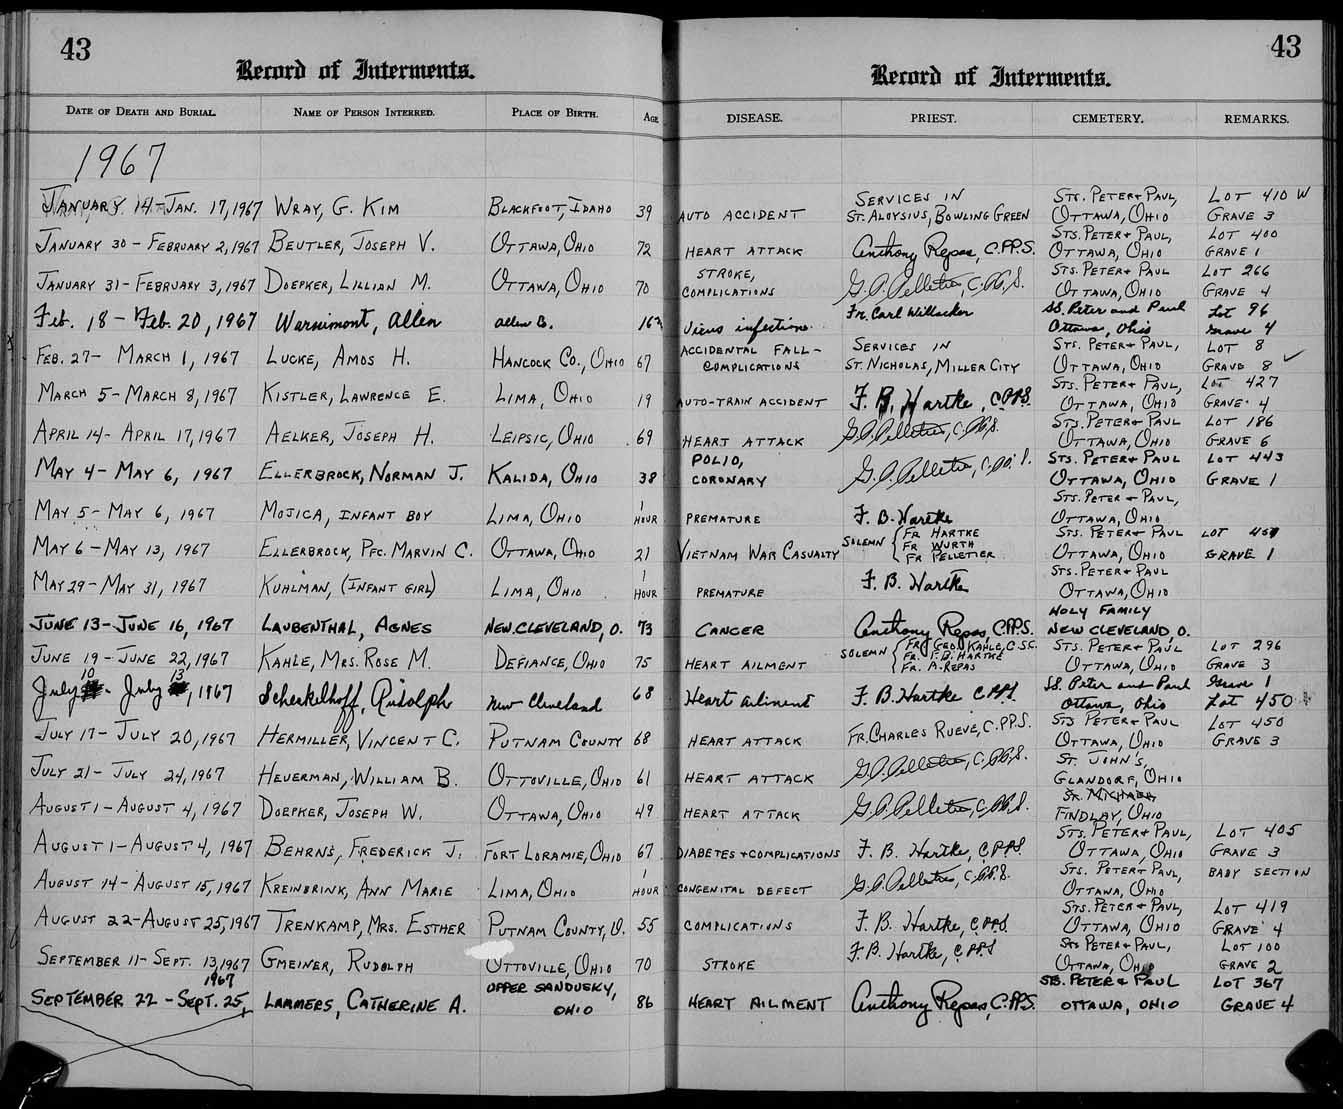 43
43
Record of Interments.
Record of Interments.
DATE OF DEATH AND BURIAL. NAME OF PERSON INTERRED. PLACE OF BIRTH. AGE DISEASE. PRIEST. CEMETERY. REMARKS.
1967
SERVICES IN STS. PETER & PAUL, LOT 410 W
JANUARY 14-JAN. 17, 1967 WRAY, G. KIM BLACKFOOT, IDAHO 39 AUTO ACCIDENT ST. ALOYSIUS, BOWLING GREEN OTTAWA, OHIO GRAVE 3
STS. PETER & PAUL, LOT 400
JANUARY 30 - FEBRUARY 2, 1967 BEUTLER, JOSEPH V. OTTAWA, OHIO 72 HEART ATTACK Anthony Repas, C.PP.S. OTTAWA, OHIO GRAVE 1
STROKE, STS. PETER & PAUL LOT 266
JANUARY 31 - FEBRUARY 3, 1967 DOEPKER, LILLIAN M. OTTAWA, OHIO 70 COMPLICATIONS G.A. Pelletier, C.PP.S. OTTAWA, OHIO GRAVE 4
Fr. Carl Willacker SS. Peter and Paul Lot 96
Feb. 18 - Feb. 20, 1967 Warnimont, Allen Allen Co. Virus infection Ottawa, Ohio Grave 4
ACCIDENTAL FALL - SERVICES IN STS. PETER & PAUL, LOT 8
FEB. 27 - MARCH 1, 1967 LUCKE, AMOS H. HANCOCK CO., OHIO 67 COMPLICATIONS ST. NICHOLAS, MILLER CITY OTTAWA, OHIO GRAVE 8 ✓
STS. PETER & PAUL, LOT 427
MARCH 5 - MARCH 8, 1967 KISTLER, LAWRENCE E. LIMA, OHIO 19 AUTO-TRAIN ACCIDENT F. B. Hartke, C.PP.S. OTTAWA, OHIO GRAVE 4
STS. PETER & PAUL LOT 186
APRIL 14 - APRIL 17, 1967 AELKER, JOSEPH H. LEIPSIC, OHIO 69 HEART ATTACK G.A. Pelletier, C.PP.S. OTTAWA, OHIO GRAVE 6
POLIO, STS. PETER & PAUL LOT 443
MAY 4 - MAY 6, 1967 ELLERBROCK, NORMAN J. KALIDA, OHIO 38 CORONARY G.A. Pelletier, C.PP.S. OTTAWA, OHIO GRAVE 1
1 STS. PETER & PAUL,
MAY 5 - MAY 6, 1967 MOJICA, INFANT BOY LIMA, OHIO HOUR PREMATURE F. B. Hartke OTTAWA, OHIO
FR HARTKE STS. PETER & PAUL LOT
MAY 6 - MAY 13, 1967 ELLERBROCK, PFC. MARVIN C. OTTAWA, OHIO 21 VIETNAM WAR CASUALTY SOLEMN { FR WURTH OTTAWA, OHIO GRAVE 1
FR PELLETIER
1 STS. PETER & PAUL
MAY 29 - MAY 31, 1967 KUHLMAN, (INFANT GIRL) LIMA, OHIO HOUR PREMATURE F. B. Hartke OTTAWA, OHIO
HOLY FAMILY
JUNE 13 - JUNE 16, 1967 LAUBENTHAL, AGNES NEW CLEVELAND, O. 73 CANCER Anthony Repas, C.PP.S. NEW CLEVELAND, O.
FR. GEO. KAHLE, C.S.C. STS. PETER & PAUL LOT 296
JUNE 19 - JUNE 22, 1967 KAHLE, MRS. ROSE M. DEFIANCE, OHIO 75 HEART AILMENT SOLEMN { FR. F.B. HARTKE OTTAWA, OHIO GRAVE 3
FR. A. REPAS
10 13 SS. Peter and Paul Grave 1
July - July , 1967 Scheckelhoff, Rudolph New Cleveland 68 Heart ailment F. B. Hartke C.PP.S. Ottawa, Ohio Lot 450
STS PETER & PAUL LOT 450
JULY 17 - JULY 20, 1967 HERMILLER, VINCENT C. PUTNAM COUNTY 68 HEART ATTACK FR. CHARLES RUEVE, C.PP.S. OTTAWA, OHIO GRAVE 3
ST. JOHN'S,
JULY 21 - JULY 24, 1967 HEUERMAN, WILLIAM B. OTTOVILLE, OHIO 61 HEART ATTACK G.A. Pelletier, C.PP.S. GLANDORF, OHIO
ST. MICHAEL,
AUGUST 1 - AUGUST 4, 1967 DOEPKER, JOSEPH W. OTTAWA, OHIO 49 HEART ATTACK G.A. Pelletier, C.PP.S. FINDLAY, OHIO
STS. PETER & PAUL, LOT 405
AUGUST 1 - AUGUST 4, 1967 BEHRNS, FREDERICK J. FORT LORAMIE, OHIO 67 DIABETES + COMPLICATIONS F. B. Hartke, C.PP.S. OTTAWA, OHIO GRAVE 3
1 STS. PETER & PAUL, BABY SECTION
AUGUST 14 - AUGUST 15, 1967 KREINBRINK, ANN MARIE LIMA, OHIO HOUR CONGENITAL DEFECT G.A. Pelletier, C.PP.S. OTTAWA, OHIO
STS. PETER & PAUL, LOT 419
AUGUST 22 - AUGUST 25, 1967 TRENKAMP, MRS. ESTHER PUTNAM COUNTY, O. 55 COMPLICATIONS F. B. Hartke, C.PP.S. OTTAWA, OHIO GRAVE 4
STS PETER & PAUL, LOT 100
SEPTEMBER 11 - SEPT. 13, 1967 GMEINER, RUDOLPH OTTOVILLE, OHIO 70 STROKE F. B. Hartke, C.PP.S OTTAWA, OHIO GRAVE 2
1967 UPPER SANDUSKY, STS. PETER & PAUL LOT 367
SEPTEMBER 22 - SEPT. 25, LAMMERS, CATHERINE A. OHIO 86 HEART AILMENT Anthony Repas, C.PP.S. OTTAWA, OHIO GRAVE 4